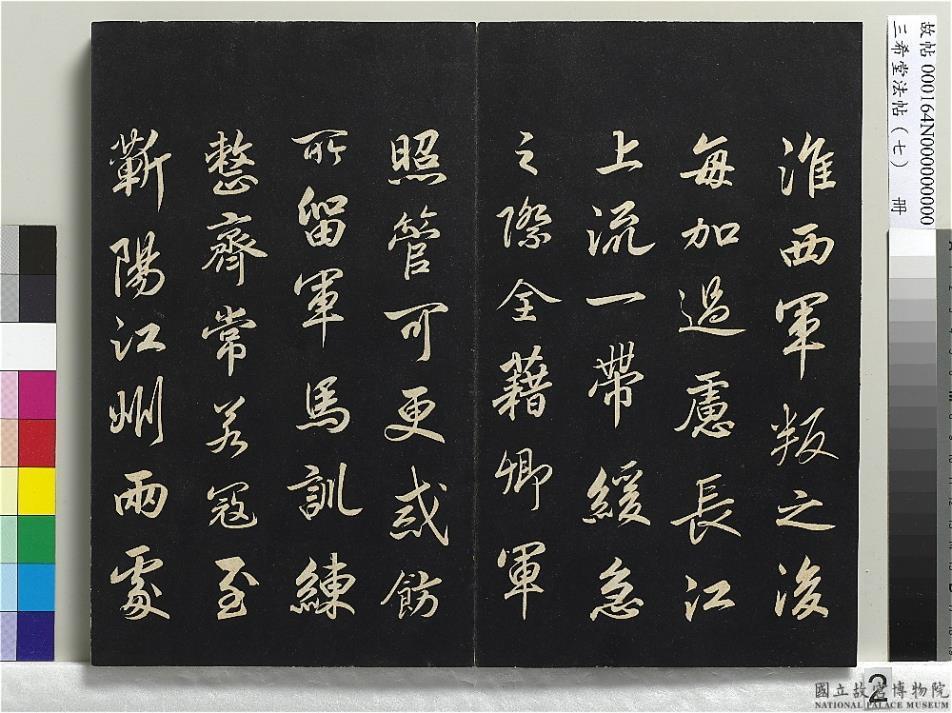 淮西軍叛之後
每加過慮長江
上流一帶緩急
之際全藉卿軍
照管可更戒飭
所留軍馬訓練
整齊常若寇至
蘄陽江州兩處
故帖 000164N000000000
三希堂法帖（七） 冊
2
國立故宮博物院
NATIONAL PALACE MUSEUM